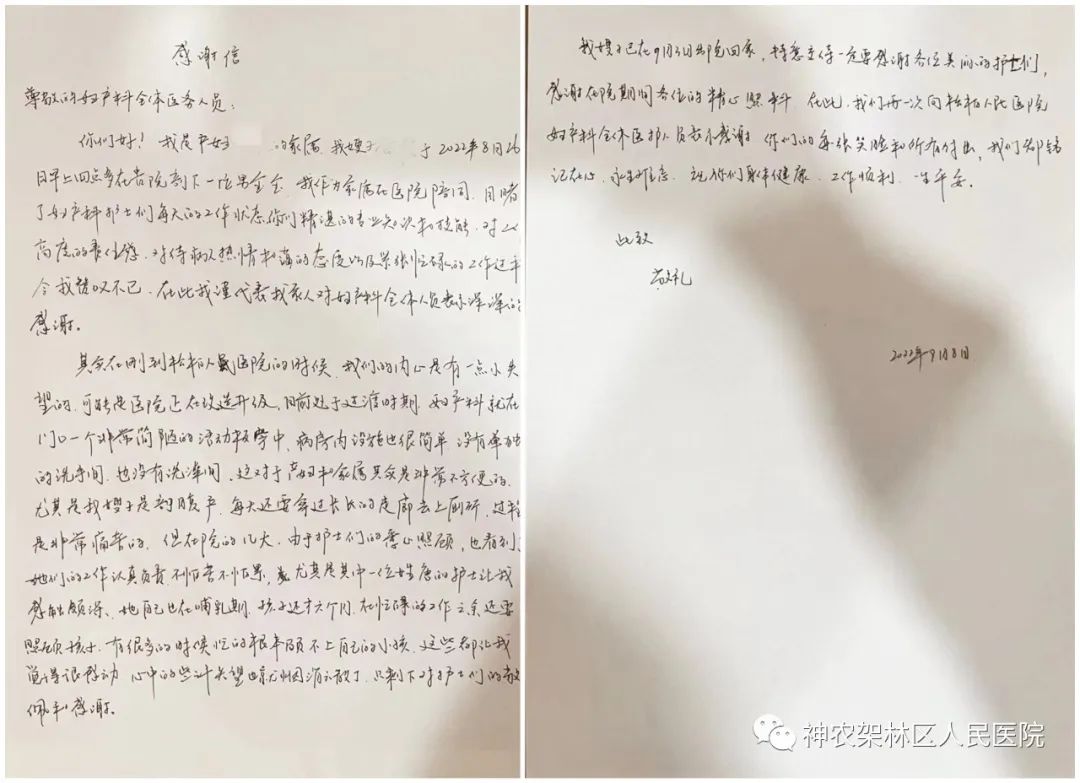 感谢信
尊敬的妇产科全体医务人员：
你们好！我是产妇 的家属，我嫂子 于2022年8月26
日早上四点多在贵院剖下一位男宝宝，我作为家属在医院陪同，目睹
了妇产科护士们每天的工作状态，你们精湛的专业知识和技能，对
高度的责任感，对待病人热情和蔼的态度以及紧张忙碌的工作过
令我赞叹不已，在此我谨代表我家人对妇产科全体人员表示深深的
感谢。
其实在刚到松柏人民医院的时候，我们的内心是有一点小失
望的，可能是医院正在改造升级，目前处于过渡时期，妇产科就在
门口一个非常简陋的活动板房中，病房内设施也很简单，没有单独
的洗手间，也没有洗澡间，这对于产妇和家属其实是非常不方便的，
尤其是我嫂子是剖腹产，每天还要穿过长长的走廊去上厕所，过程
是非常痛苦的，但在院的几天，由于护士们的悉心照顾，也看到
她们的工作认真负责不怕苦不怕累，尤其是其中一位姓唐的护士让我
感触颇深，她自己也在哺乳期，孩子还才六个月，在忙碌的工作之余还要
照顾孩子，有很多的时候忙的根本顾不上自己的小孩，这些都让我
觉得很感动，心中的些许失望也就烟消云散了，只剩下对护士们的敬
佩和感谢。
我嫂子已在9月3日出院回家，特意交待一定要感谢各位美丽的护士们，
感谢在院期间各位的精心照料，在此，我们再一次向松柏人民医院
妇产科全体医护人员表示感谢，你们的每张笑脸和所有付出，我们都铭
记在心，永生难忘，祝你们身体健康，工作顺利，一生平安。
此致
敬礼
2022年9月8日
神农架林区人民医院